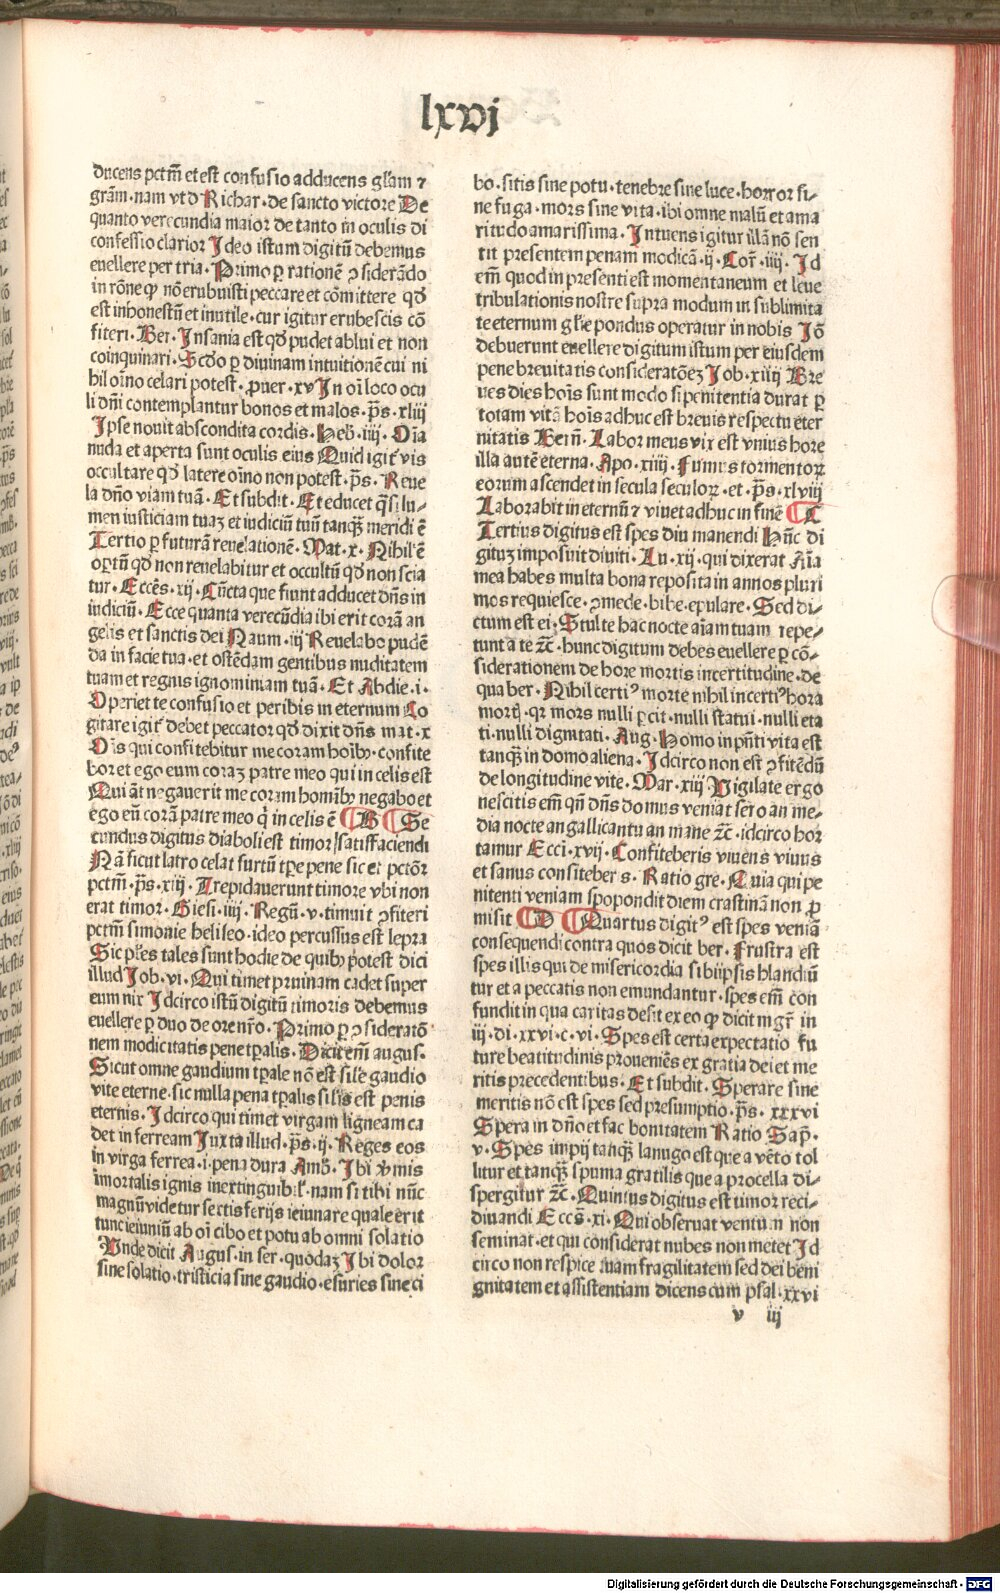 lxvj
ducens pctm̄ et est confusio adducens gl̄am ⁊
gr̄am. nam vt d Richar. de sancto victore De
quanto verecundia maior de tanto in oculis di
confessio clarior Ideo istum digitū debemus
euellere per tria. Primo ꝑ rationē ꝯsiderādo
in rōne ꝙ nō erubuisti peccare et cōmittere qd̄
est inhonestū et inutile. cur igitur erubescis cō
fiteri. Ber. Insania est qd̄ pudet ablui et non
coinquinari. Scd̄o ꝑ diuinam intuitionē cui ni
hil oīno celari potest. ꝓuer. xv In oī loco ocu
li dn̄i contemplantur bonos et malos. ps̄. xliij
Ipse nouit abscondita cordis. Heb̄. iiij. Oīa
nuda et aperta sunt oculis eius Quid igit᷑ vis
occultare qd̄ latere oīno non potest. ps̄. Reue
la dn̄o viam tuā. Et subdit. Et educet q̄si lu⸗
men iusticiam tuaꝫ et iudiciū tuū tanqꝫ meridiē
Tertio ꝑ futurā reuelationē. Mat. x. Nihil ē
oꝑtū qd̄ non reuelabitur et occultū qd̄ non scia
tur. Eccēs. xij. Cūcta que fiunt adducet dn̄s in
iudiciū. Ecce quanta verecūdia ibi erit corā an
gelis et sanctis dei Naum. iij Reuelabo pudē
da in facie tua. et ostēdam gentibus nuditatem
tuam et regnis ignominiam tuā. Et Abdie. i.
Operiet te confusio et peribis in eternum Co
gitare igit᷑ debet peccator qd̄ dixit dn̄s mat. x
Oīs qui confitebitur me coram hoībꝫ. confite
bor et ego eum coraꝫ patre meo qui in celis est
Qui āt negauerit me coram homībꝫ negabo et
ego eū corā patre meo q̄ in celis ē B Se
cundus digitus diaboli est timor satisfaciendi
Nā sicut latro celat furtū tꝑe pene sic et pctōr
pctm̄. ps̄. xiij. Trepidauerunt timore vbi non
erat timor. Giesi. iiij. Regū. v. timuit ꝯfiteri
pctm̄ simonie heliseo. ideo percussus est lepra
Sic pl̄es tales sunt hodie de quibꝫ potest dici
illud Iob. vi. Qui timet pruinam cadet super
eum nix Idcirco istū digitū timoris debemus
euellere ꝑ duo de ore nr̄o. Primo ꝑ ꝯsideratō
nem modicitatis pene tꝑalis. Dicit em̄ augus.
Sicut omne gaudium tꝑale nō est sil̄e gaudio
vite eterne. sic nulla pena tꝑalis sil̄is est penis
eternis. Idcirco qui timet virgam ligneam ca
det in ferream Iuxta illud. ps̄. ij. Reges eos
in virga ferrea. i. pena dura Amb̄. Ibi v̄mis
imortalis ignis inextinguibil᷑. nam si tibi nūc
magnū videtur sectis ferijs ieiunare quale erit
tunc ieiuniū ab oī cibo et potu ab omni solatio
Unde dicit Augus. in ser. quodaꝫ Ibi dolor
sine solatio. tristicia sine gaudio. esuries sine ci
bo. sitis sine potu. tenebre sine luce. horror si⸗
ne fuga. mors sine vita. ibi omne malū et ama
ritudo amarissima. Intuens igitur illā nō sen
tit presentem penam modicā. ij. Cor̄. iiij. Id
em̄ quod in presenti est momentaneum et leue
tribulationis nostre supra modum in sublimita
te eternum gl̄ie pondus operatur in nobis Iō
debuerunt euellere digitum istum per eiusdem
pene breuitatis consideratōeꝫ Iob. xiiij Bre
ues dies hoīs sunt modo si penitentia durat ꝑ
totam vitā hoīs adhuc est breuis respectu eter
nitatis Bern̄. Labor meus vix est vnius hore
illa autē eterna. Apo. xiiij. Fumus tormentoꝝ
eorum ascendet in secula seculoꝝ. et. ps̄. xlviij
Laborabit in eternū ⁊ viuet adhuc in finē C
Tertius digitus est spes diu manendi Hūc di
gituꝫ imposuit diuiti. Lu. xij. qui dixerat Aīa
mea habes multa bona reposita in annos pluri
mos requiesce. ꝯmede. bibe. epulare. Sed di⸗
ctum est ei. Stulte hac nocte aīam tuam repe⸗
tunt a te ⁊c̄. hunc digitum debes euellere ꝑ cō⸗
siderationem de hore mortis incertitudine. de
qua ber. Nihil certiꝰ morte nihil incertiꝰ hora
mortꝭ. qr mors nulli ꝑcit. nulli statui. nulli eta
ti. nulli dignitati. Aug. Homo in pn̄ti vita est
tanqꝫ in domo aliena. Idcirco non est ꝯfitēdū
de longitudine vite. Mar. xiij Vigilate ergo
nescitis em̄ qn̄ dn̄s domus veniat sero an me⸗
dia nocte an gallicantu an mane ⁊c̄. idcirco hor
tamur Ecci. xvij. Confiteberis viuens viuus
et sanus confiteberis. Ratio gre. Quia qui pe
nitenti veniam spopondit diem crastinā non ꝓ
misit D Quartus digitꝰ est spes veniā
consequendi contra quos dicit ber. Frustra est
spes illis qui de misericordia sibiipsis blandiū
tur et a peccatis non emundantur. spes em̄ con
fundit in qua caritas desit ex eo ꝙ dicit mgr̄ in
iij. di. xxvi. c. vi. Spes est certa expectatio fu
ture beatitudinis proueniēs ex gratia dei et me
ritis precedentibus. Et subdit. Sperare sine
meritis nō est spes sed presumptio. ps̄. xxxvi
Spera in dn̄o et fac bonitatem Ratio Sap̄.
v. Spes impij tanqꝫ lanugo est que a vēto tol
litur et tanqꝫ spuma gratilis que a procella di⸗
spergitur ⁊c̄. Quintus digitus est timor reci⸗
diuandi Eccs̄. xi. Qui obseruat ventum non
seminat. et qui considerat nubes non metet Id
circo non respice tuam fragilitatem sed dei beni
gnitatem et assistentiam dicens cum psal. xxvi
v iij
Digitalisierung gefördert durch die Deutsche Forschungsgemeinschaft - DFG